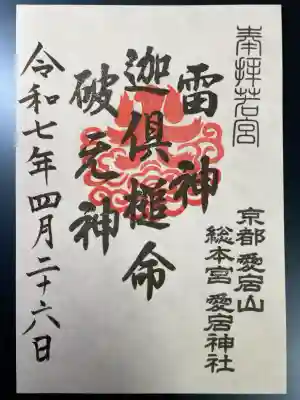 奉拝若宮
京都愛宕山
総本宮 愛宕神社
雷神
迦倶槌命
破无神
令和七年四月二十六日